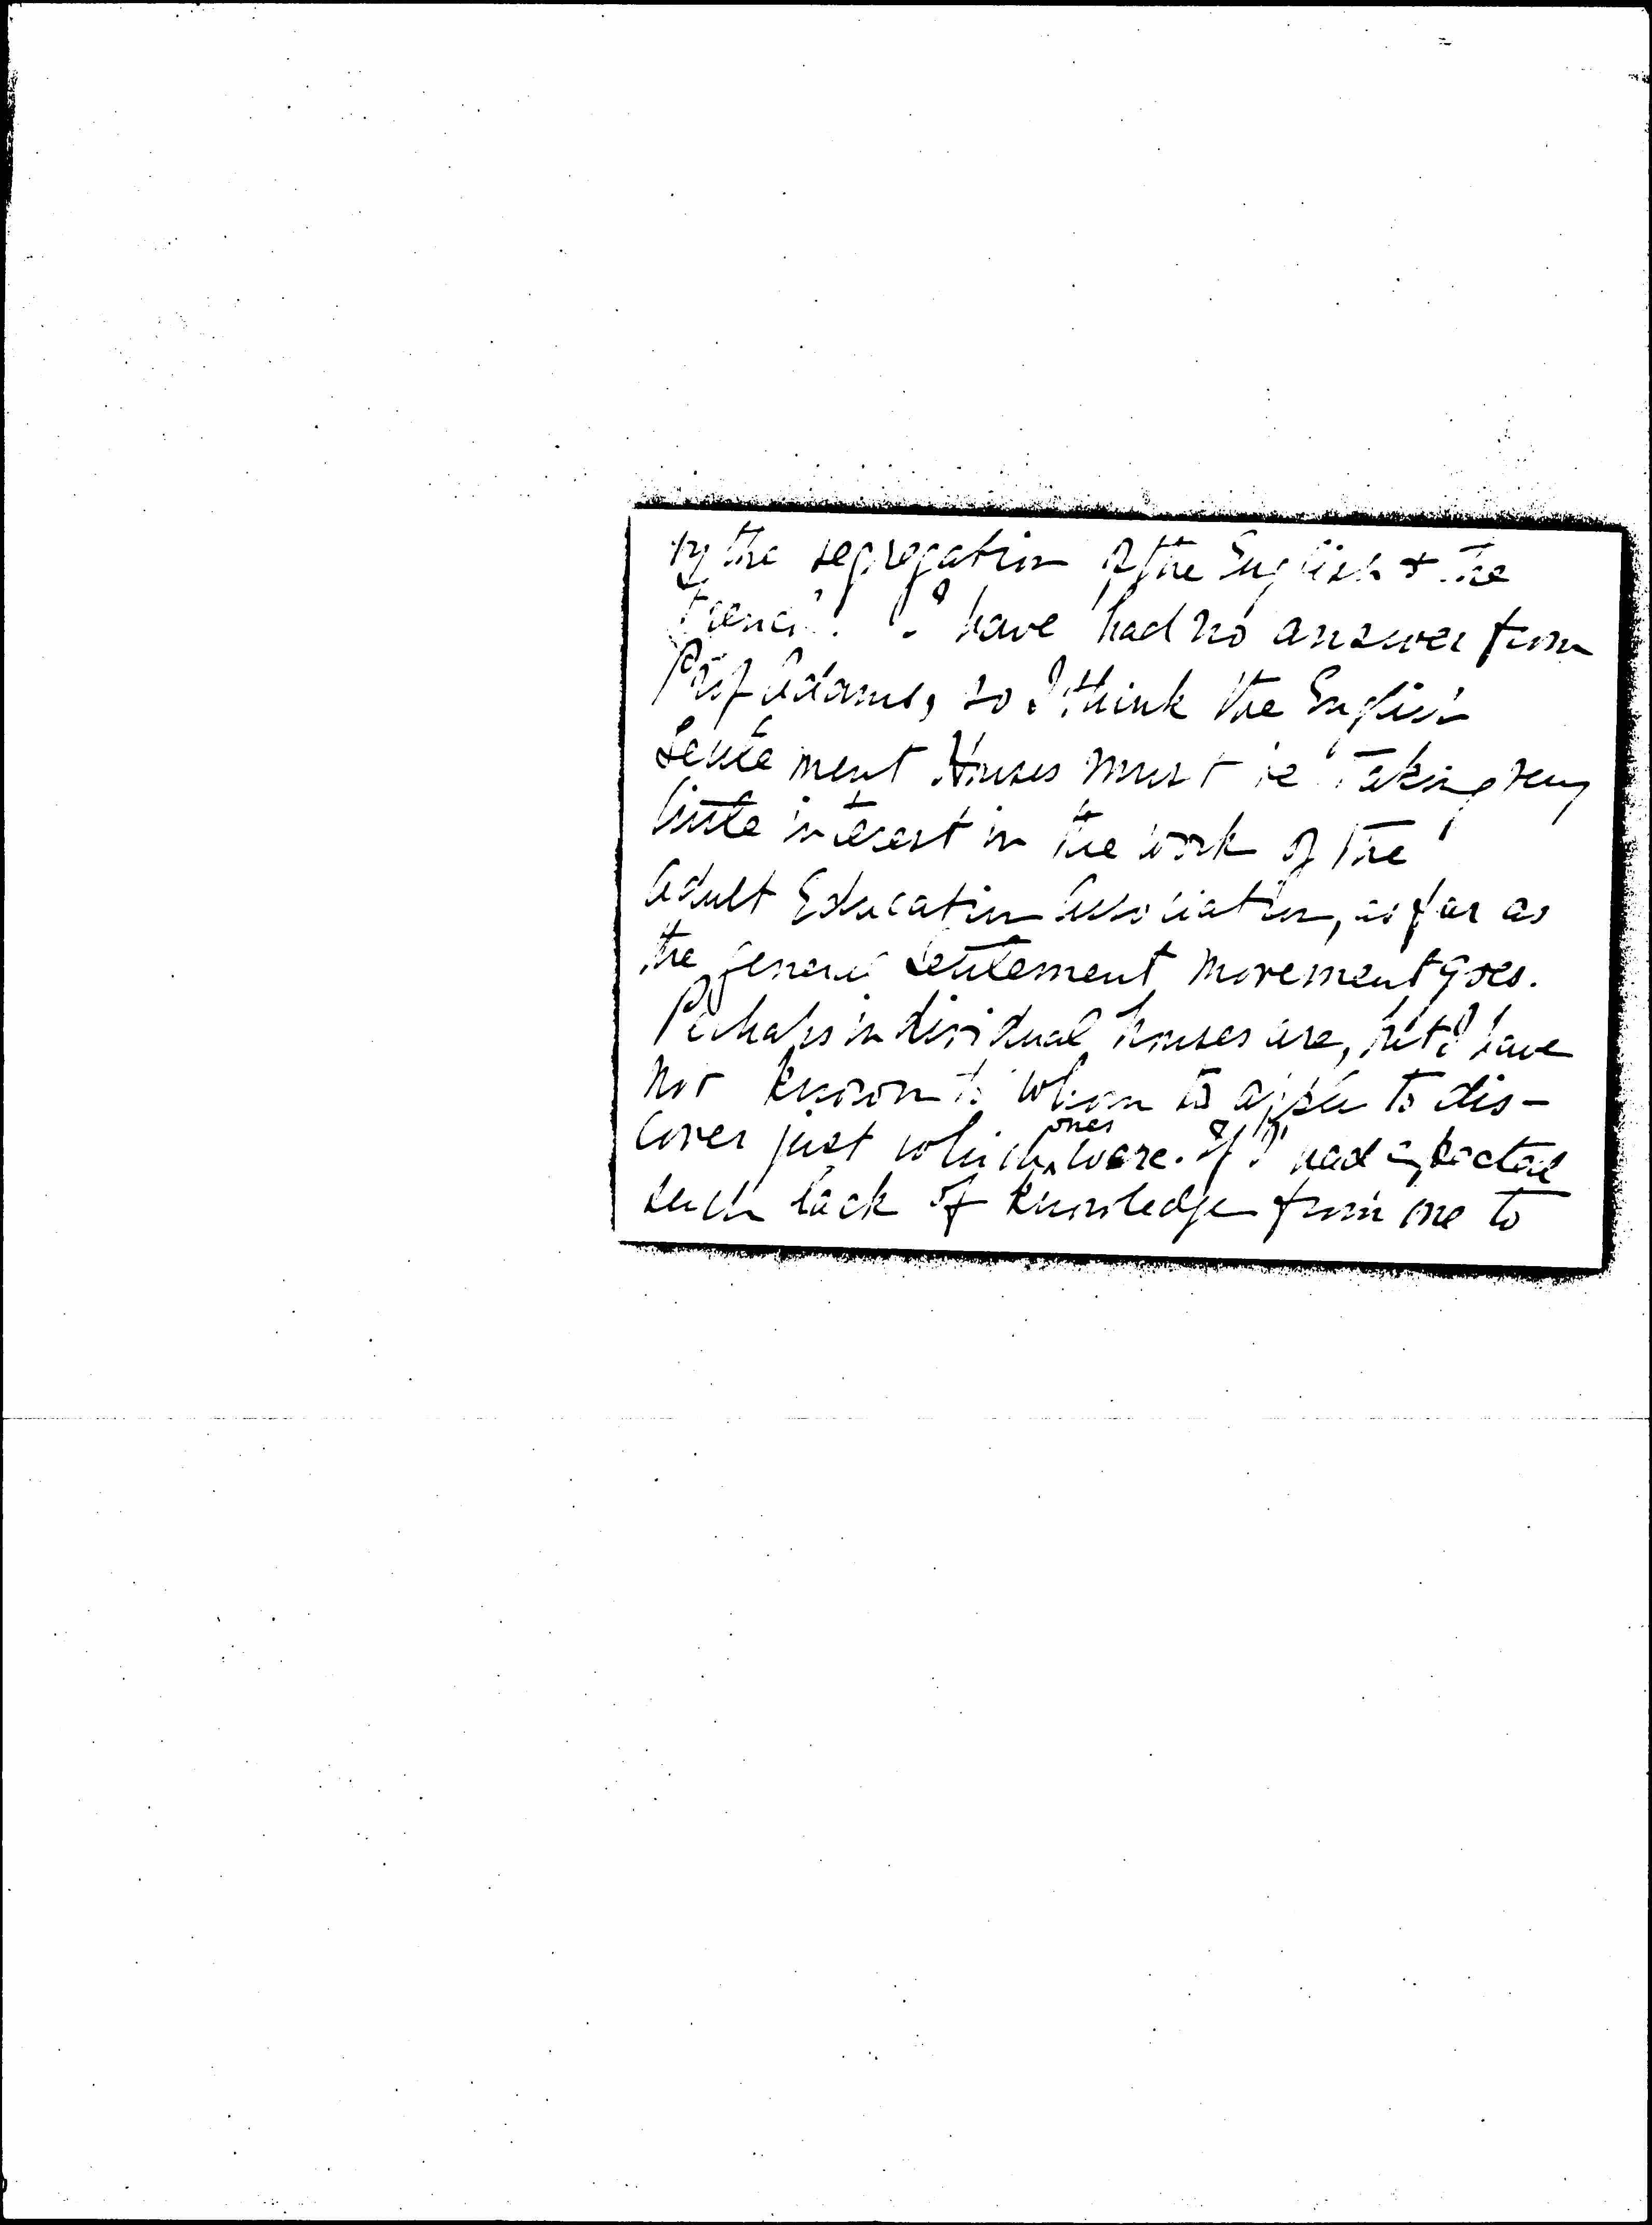 by the segregation of the English & the
French. I have had no answer from
Prof Adams, so I think the English
Settlement Houses must be taking very
little interest in the work of the
Adult Education Association, as far as
the general Settlement movement goes.
Perhaps individual houses are, but I have
not known to whom to apply to dis-
cover just which ones were. If I had expected
such lack of knowledge from one to